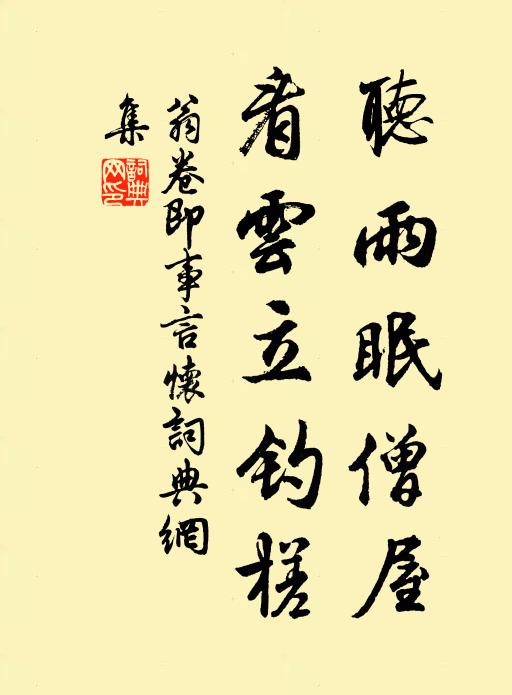 聽雨眠僧屋
看雲立釣槎
翁卷即事言懷詞典網
集
詞典網印